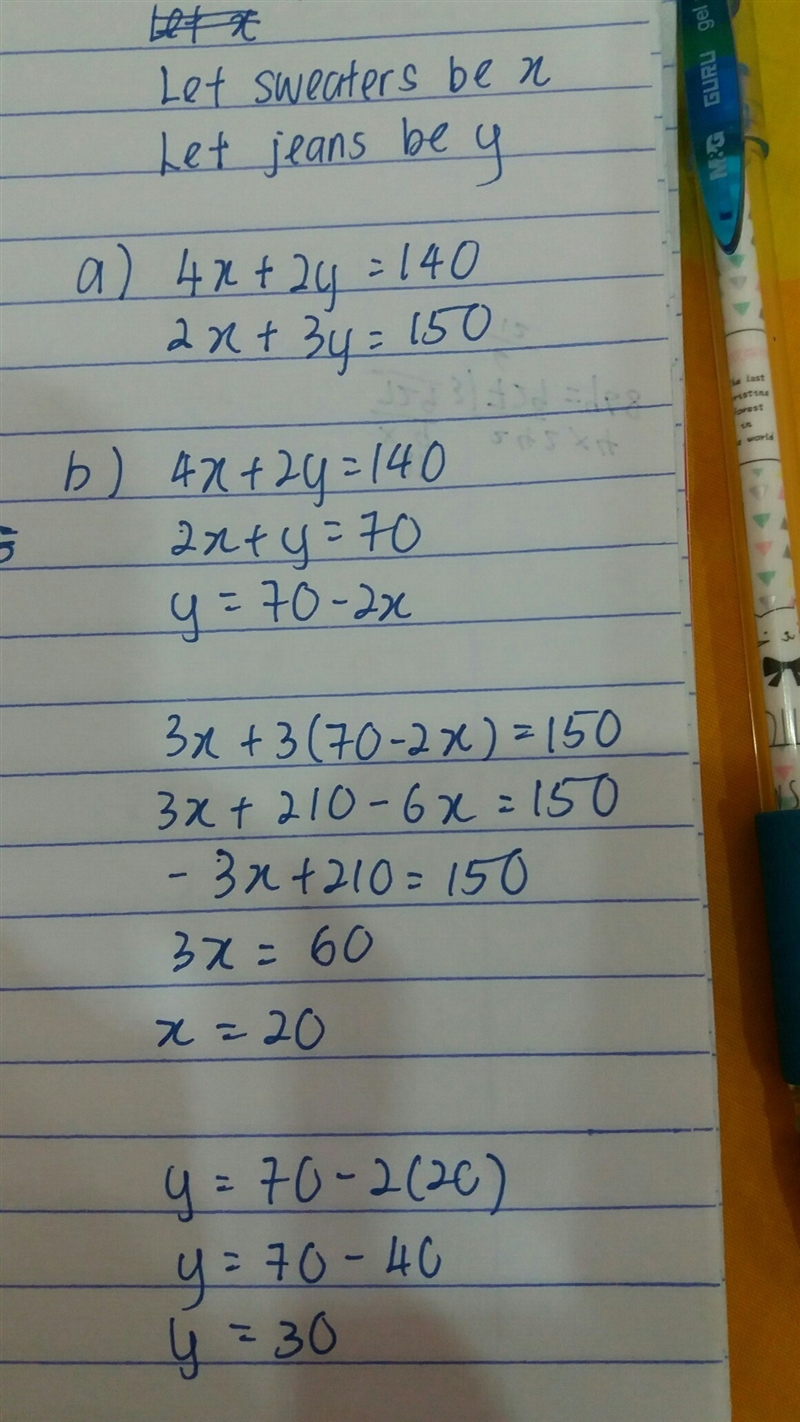 Let x
Let sweaters be x
Let jeans be y
a) 4x + 2y = 140
2x + 3y = 150
b) 4x + 2y = 140
2x + y = 70
y = 70 - 2x
3x + 3(70 - 2x) = 150
3x + 210 - 6x = 150
- 3x + 210 = 150
3x = 60
x = 20
y = 70 - 2(20)
y = 70 - 40
y = 30
M&G GURU gel
The last
pristine
forest
in
the world